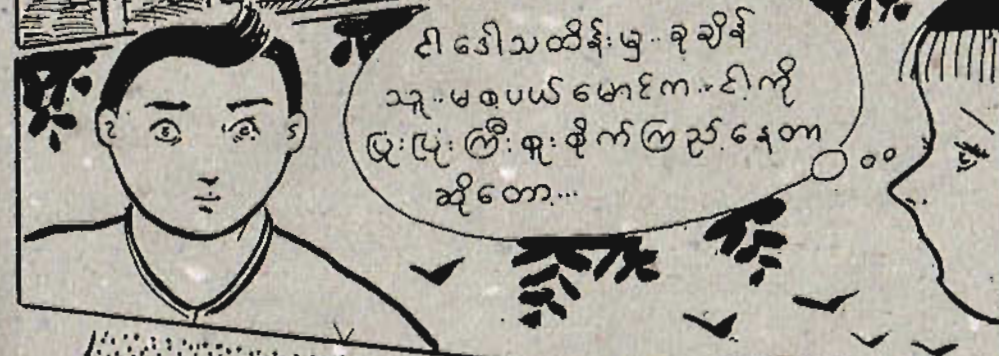 ငါ ဒေါသထိန်းမှ.. ခုချိန်
သူ..မစပယ် မောင်က..ငါ့ကို
ပြုံးပြုံးကြီး စူးစိုက်ကြည့်နေတာ
ဆိုတော့...